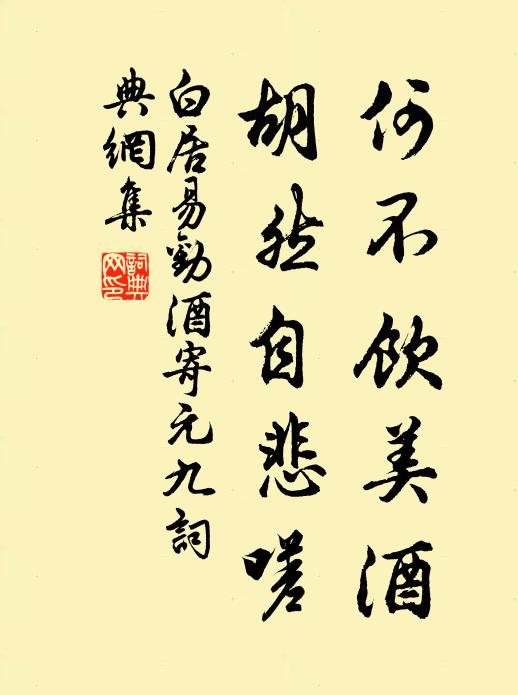 何不飲美酒
胡然自悲嗟
白居易勸酒寄元九詞
典網集
詞典
网印